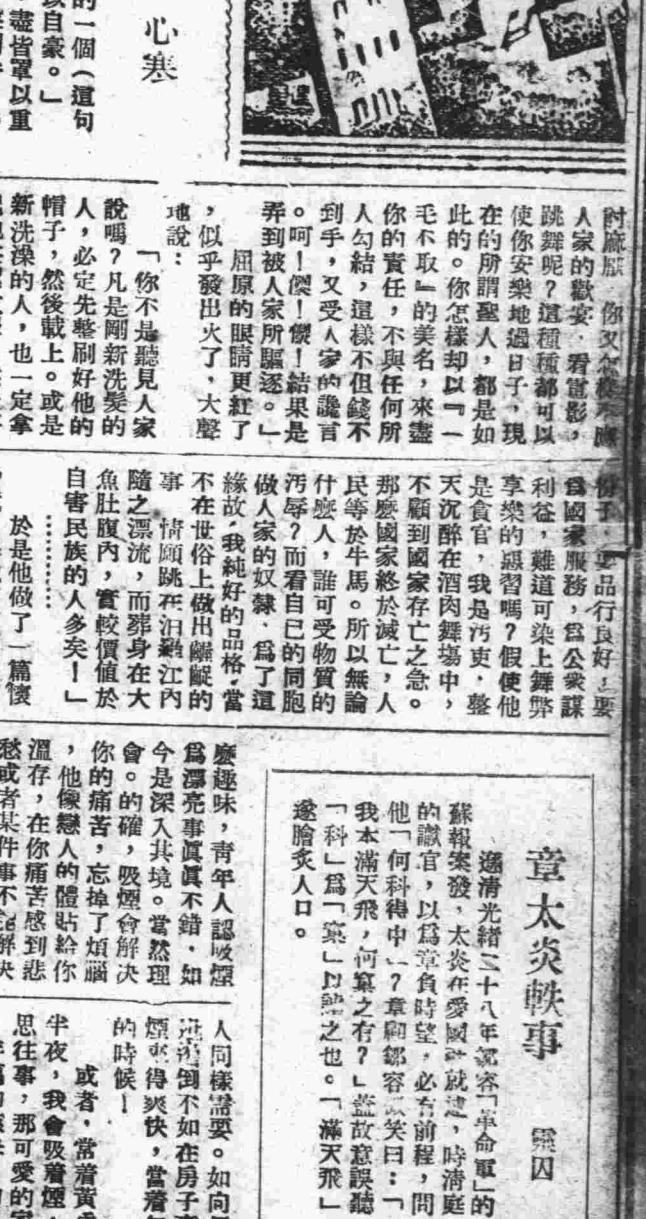 心寒
的一個（這句
以自豪。」
盡皆罩以重
人家的歡宴，看電影，
跳舞呢？這種種都可以
使你安樂地過日子，現
在的所謂聖人，都是如
此的。你怎樣却以『一
毛不取』的美名，來盡
你的責任，不與任何所
人勾結，這樣不但錢不
到手，又受人家的讒言
。呵！儍！儍！結果是
弄到被人家所驅逐。」
屈原的眼睛更紅了
，似乎發出火了，大聲
地說：
「你不是聽見人家
說嗎？凡是剛新洗髮的
人，必定先整刷好他的
帽子，然後載上。或是
新洗澡的人，也一定拿
份子，要品行良好，要
爲國家服務，爲公衆謀
利益，難道可染上舞弊
享樂的惡習嗎？假使他
是貪官，我是汚吏，整
天沉醉在酒肉舞塲中，
不顧到國家存亡之急。
那麽國家終於滅亡，人
民等於牛馬。所以無論
什麽人，誰可受物質的
汚辱？而看自已的同胞
做人家的奴隸，爲了這
緣故，我純好的品格，當
不在世俗上做出齷齪的
事，情願跳在汨羅江內
隨之漂流，而葬身在大
魚肚腹內，實較價値於
自害民族的人多矣！」
…………
於是他做了一篇懷
章太炎軼事
靈囚
遜清光緒二十八年鄒容「革命軍」的
蘇報案發，太炎在愛國社就逮，時淸庭
的讞官，以爲章負時望，必有前程，問
他「何科得中」？章顧鄒容微笑曰：「
我本滿天飛，何窠之有？」蓋故意誤聽
「科」爲「窠」以戲之也。「滿天飛」
遂膾炙人口。
麽趣味，靑年人認吸煙
爲漂亮事眞眞不錯，如
今是深入其境。當然理
會。的確，吸煙會解决
你的痛苦，忘掉了煩腦
，他像戀人的體貼給你
溫存，在你痛苦感到悲
愁或者某件事不能解决
人同樣需要。如向
倒不如在房子
煙來得爽快，當着
的時候！
或者，當着黃
半夜，我會吸着煙，
思往事，那可愛的